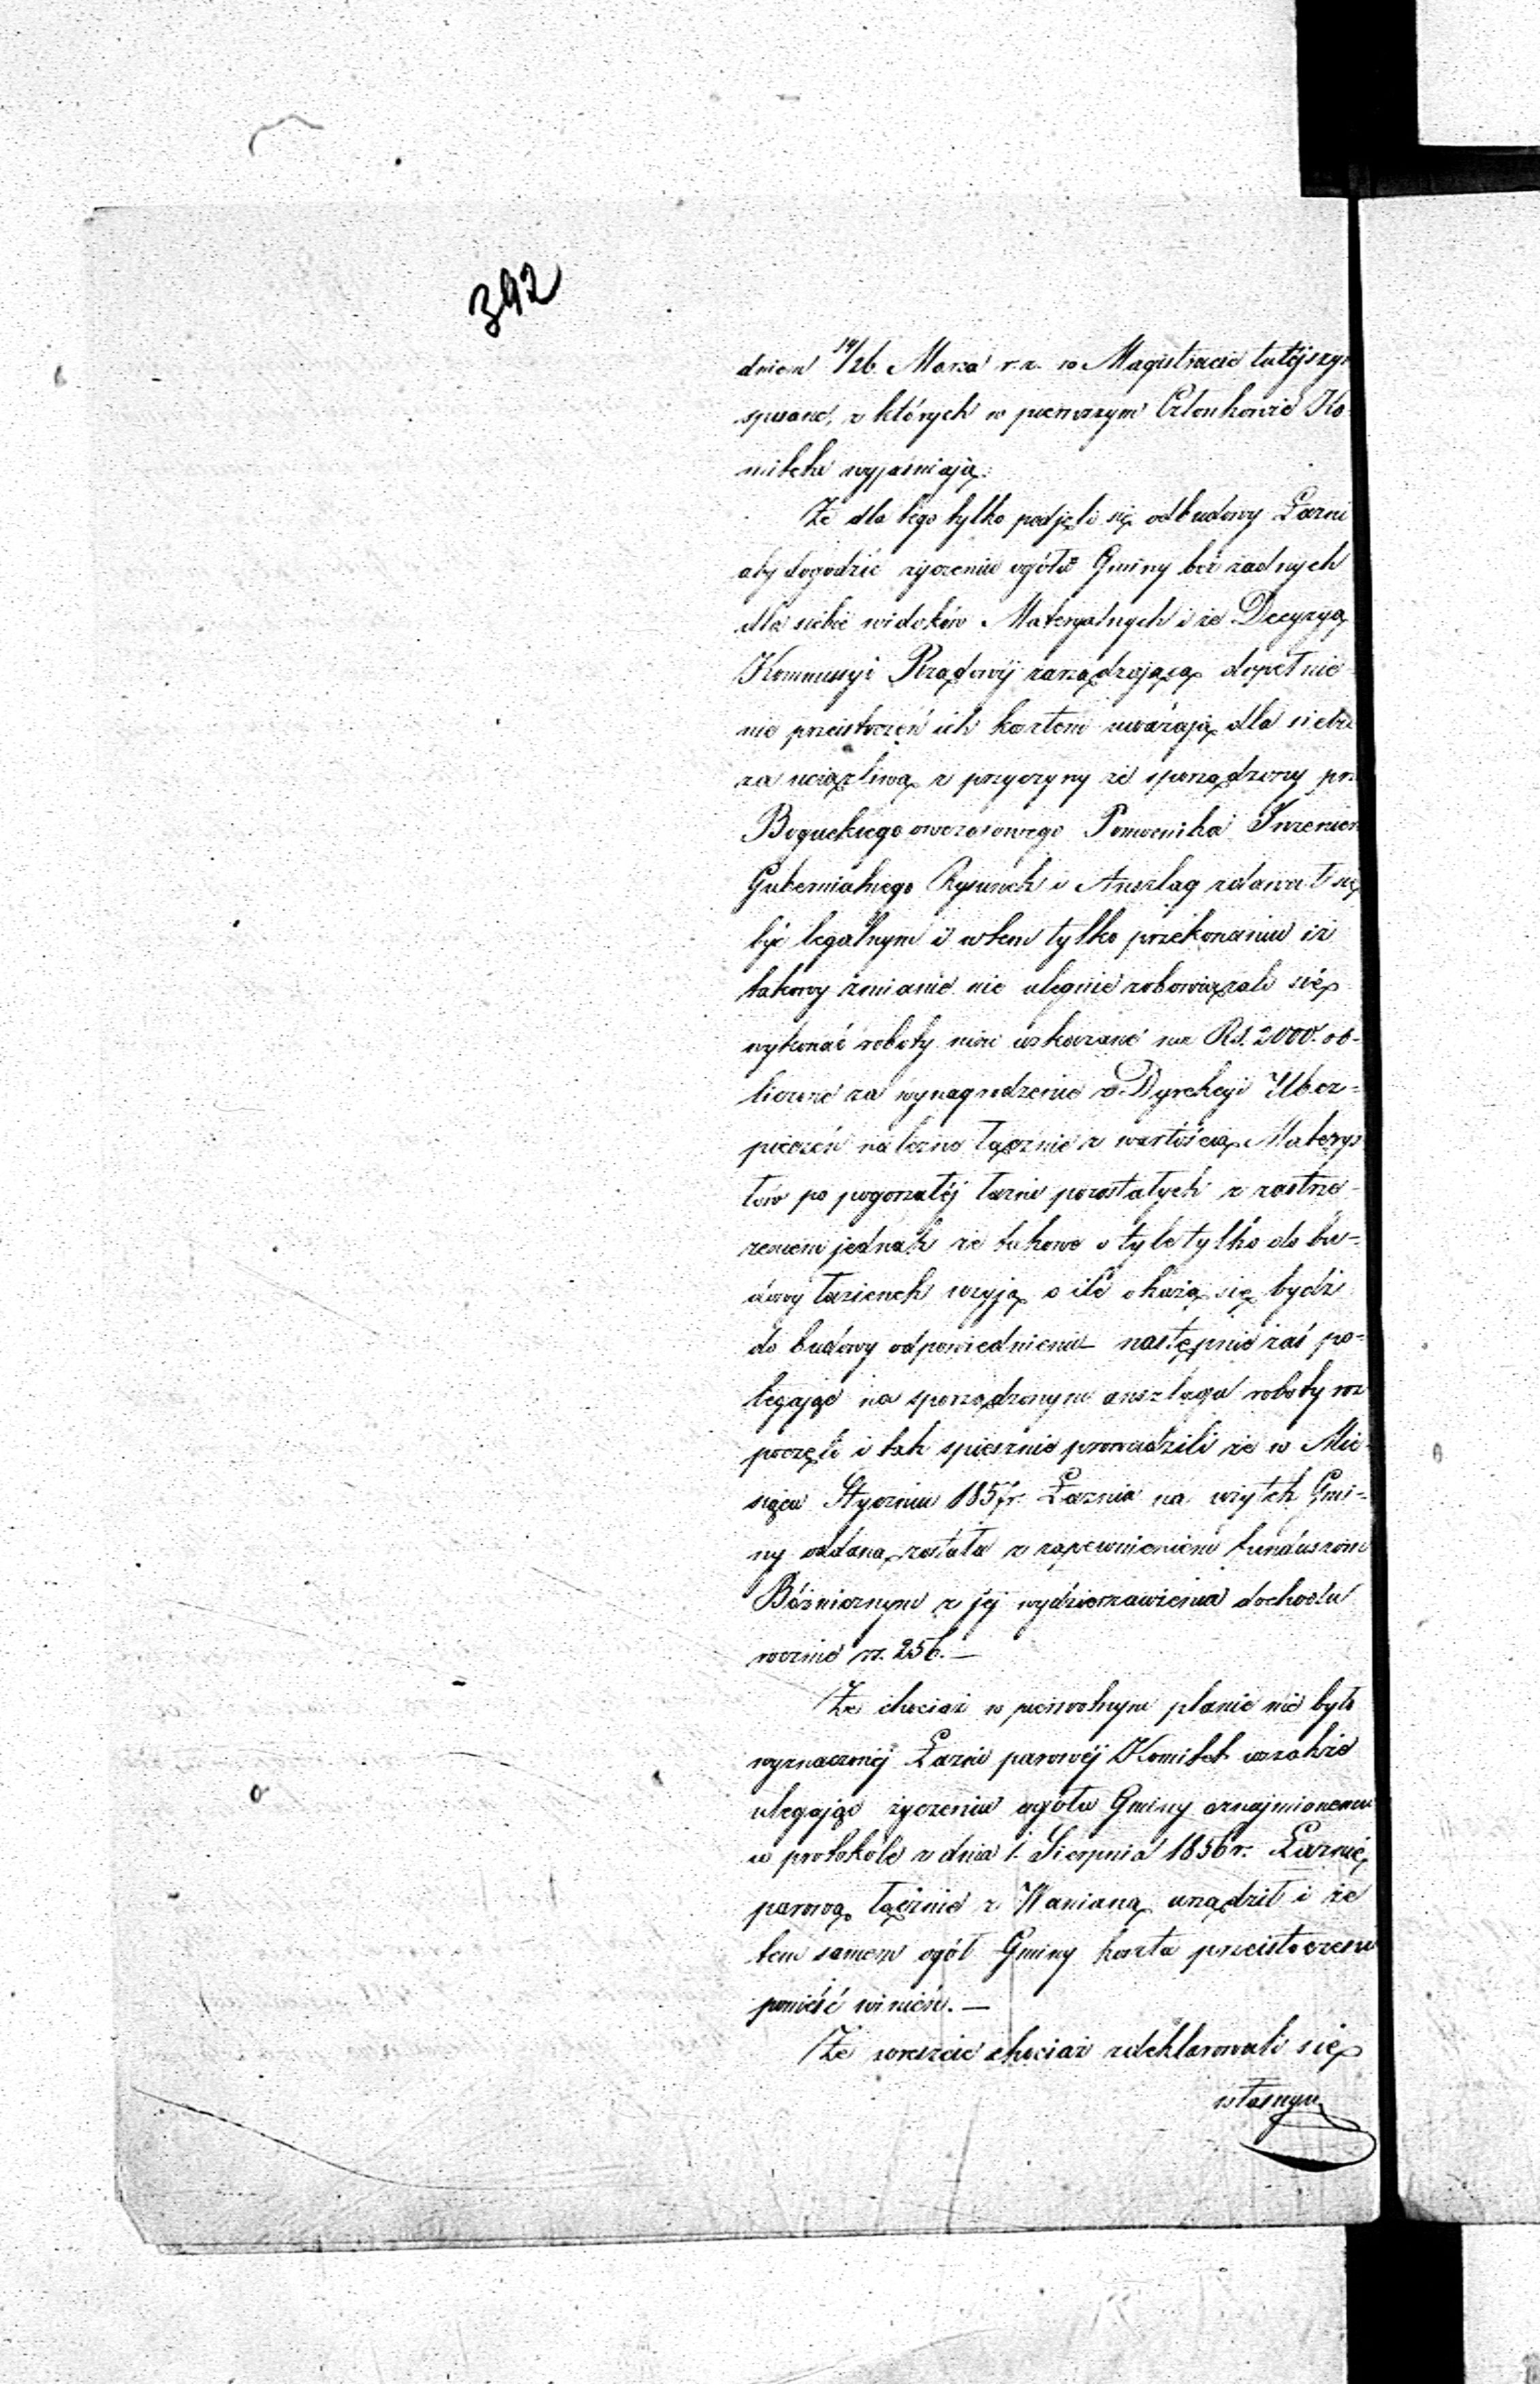 392
dniem 14/26 Marca r.z. w Magistracie tutéjszym
spisane, z których w pierwszym Członkowie Ko
mitetu wyjaśniają:
Że dla tego tylko podjęli się odbudowy Łazni
aby dogodzić życzeniu ogółu Gminy bez żadnych
dla siebie widoków Materyalnych i że Decyzyą
Kommissyi Rządowéj zarządzającą dopełnie
nie przeistoczeń ich kosztem uważają dla siebie
za uciążliwą z przyczyny że sporządzony prz
Boguckiego owczasowego Pomocnika Inżenier
Gubernialnego Rysunek i Anszlag zdawał się
być legalnym i w tem tylko przekonaniu iż
takowy zmianie nie ulegnie zobowiązali się
wykonać roboty nim wskazane na Rs. 2000. ob-
liczone za wynagrodzenie z Dyrekcyi Ubez-
pieczeń należne łącznie z wartością Materya
łów po pogorzałéj łazni pozostałych z zastrze-
żeniem jednak że takowe o tyle tylko do bu-
dowy łazienek użyją o ile okażą się bydź
do budowy odpowiedniemi następnie zaś po-
legając na sporządzonym anszlagu roboty roz
poczęli i tak spiesznie prowadzili że w Mie-
siącu Styczniu 1857 r. Łaznia na użytek Gmi-
ny oddaną została z zapewnieniem funduszom
Bóżnicznym z jéj wydzierzawienia dochodu
rocznie rs. 256.—
Że chociaż w pierwotnym planie nie było
wyznaczonéj Łazni parowéj Komitet wszakże
ulegając życzeniu ogółu Gminy oznajmionemu
w protokóle z dnia 1. Sierpnia 1856 r. Łaznię
parową łącznie z Wanianą urządził i że
tem samem ogół Gminy koszta przeistoczenia
ponieść winien.—
Że wreszcie chociaż zdeklarowali się
własnym